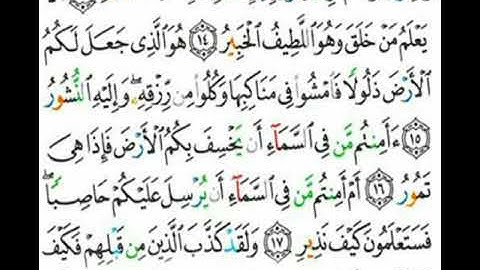 يَعْلَمُ مَنْ خَلَقَ وَهُوَ ٱللَّطِيفُ ٱلْخَبِيرُ ١٤ هُوَ ٱلَّذِى جَعَلَ لَكُمُ
ٱلْأَرْضَ ذَلُولًا فَٱمْشُوا۟ فِى مَنَاكِبِهَا وَكُلُوا۟ مِن رِّزْقِهِۦ ۖ وَإِلَيْهِ ٱلنُّشُورُ
١٥ ءَأَمِنتُم مَّن فِى ٱلسَّمَآءِ أَن يَخْسِفَ بِكُمُ ٱلْأَرْضَ فَإِذَا هِىَ
تَمُورُ ١٦ أَمْ أَمِنتُم مَّن فِى ٱلسَّمَآءِ أَن يُرْسِلَ عَلَيْكُمْ حَاصِبًا ۖ
فَسَتَعْلَمُونَ كَيْفَ نَذِيرِ ١٧ وَلَقَدْ كَذَّبَ ٱلَّذِينَ مِن قَبْلِهِمْ فَكَيْفَ